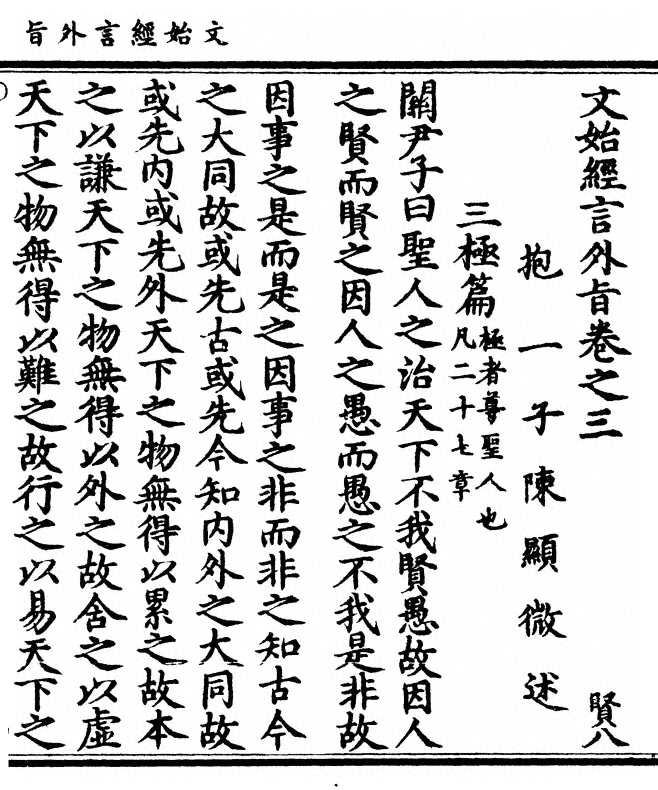 文始經言外旨
文始經言外旨卷之三
賢八
抱一子陳顯微述
三極篇
極者尊聖人也
凡二十七章
關尹子曰聖人之治天下不我賢愚故因人
之賢而賢之因人之愚而愚之不我是非故
因事之是而是之因事之非而非之知古今
之大同故或先古或先今知内外之大同故
或先内或先外天下之物無得以累之故本
之以謙天下之物無得以外之故舍之以虛
天下之物無得以難之故行之以易天下之